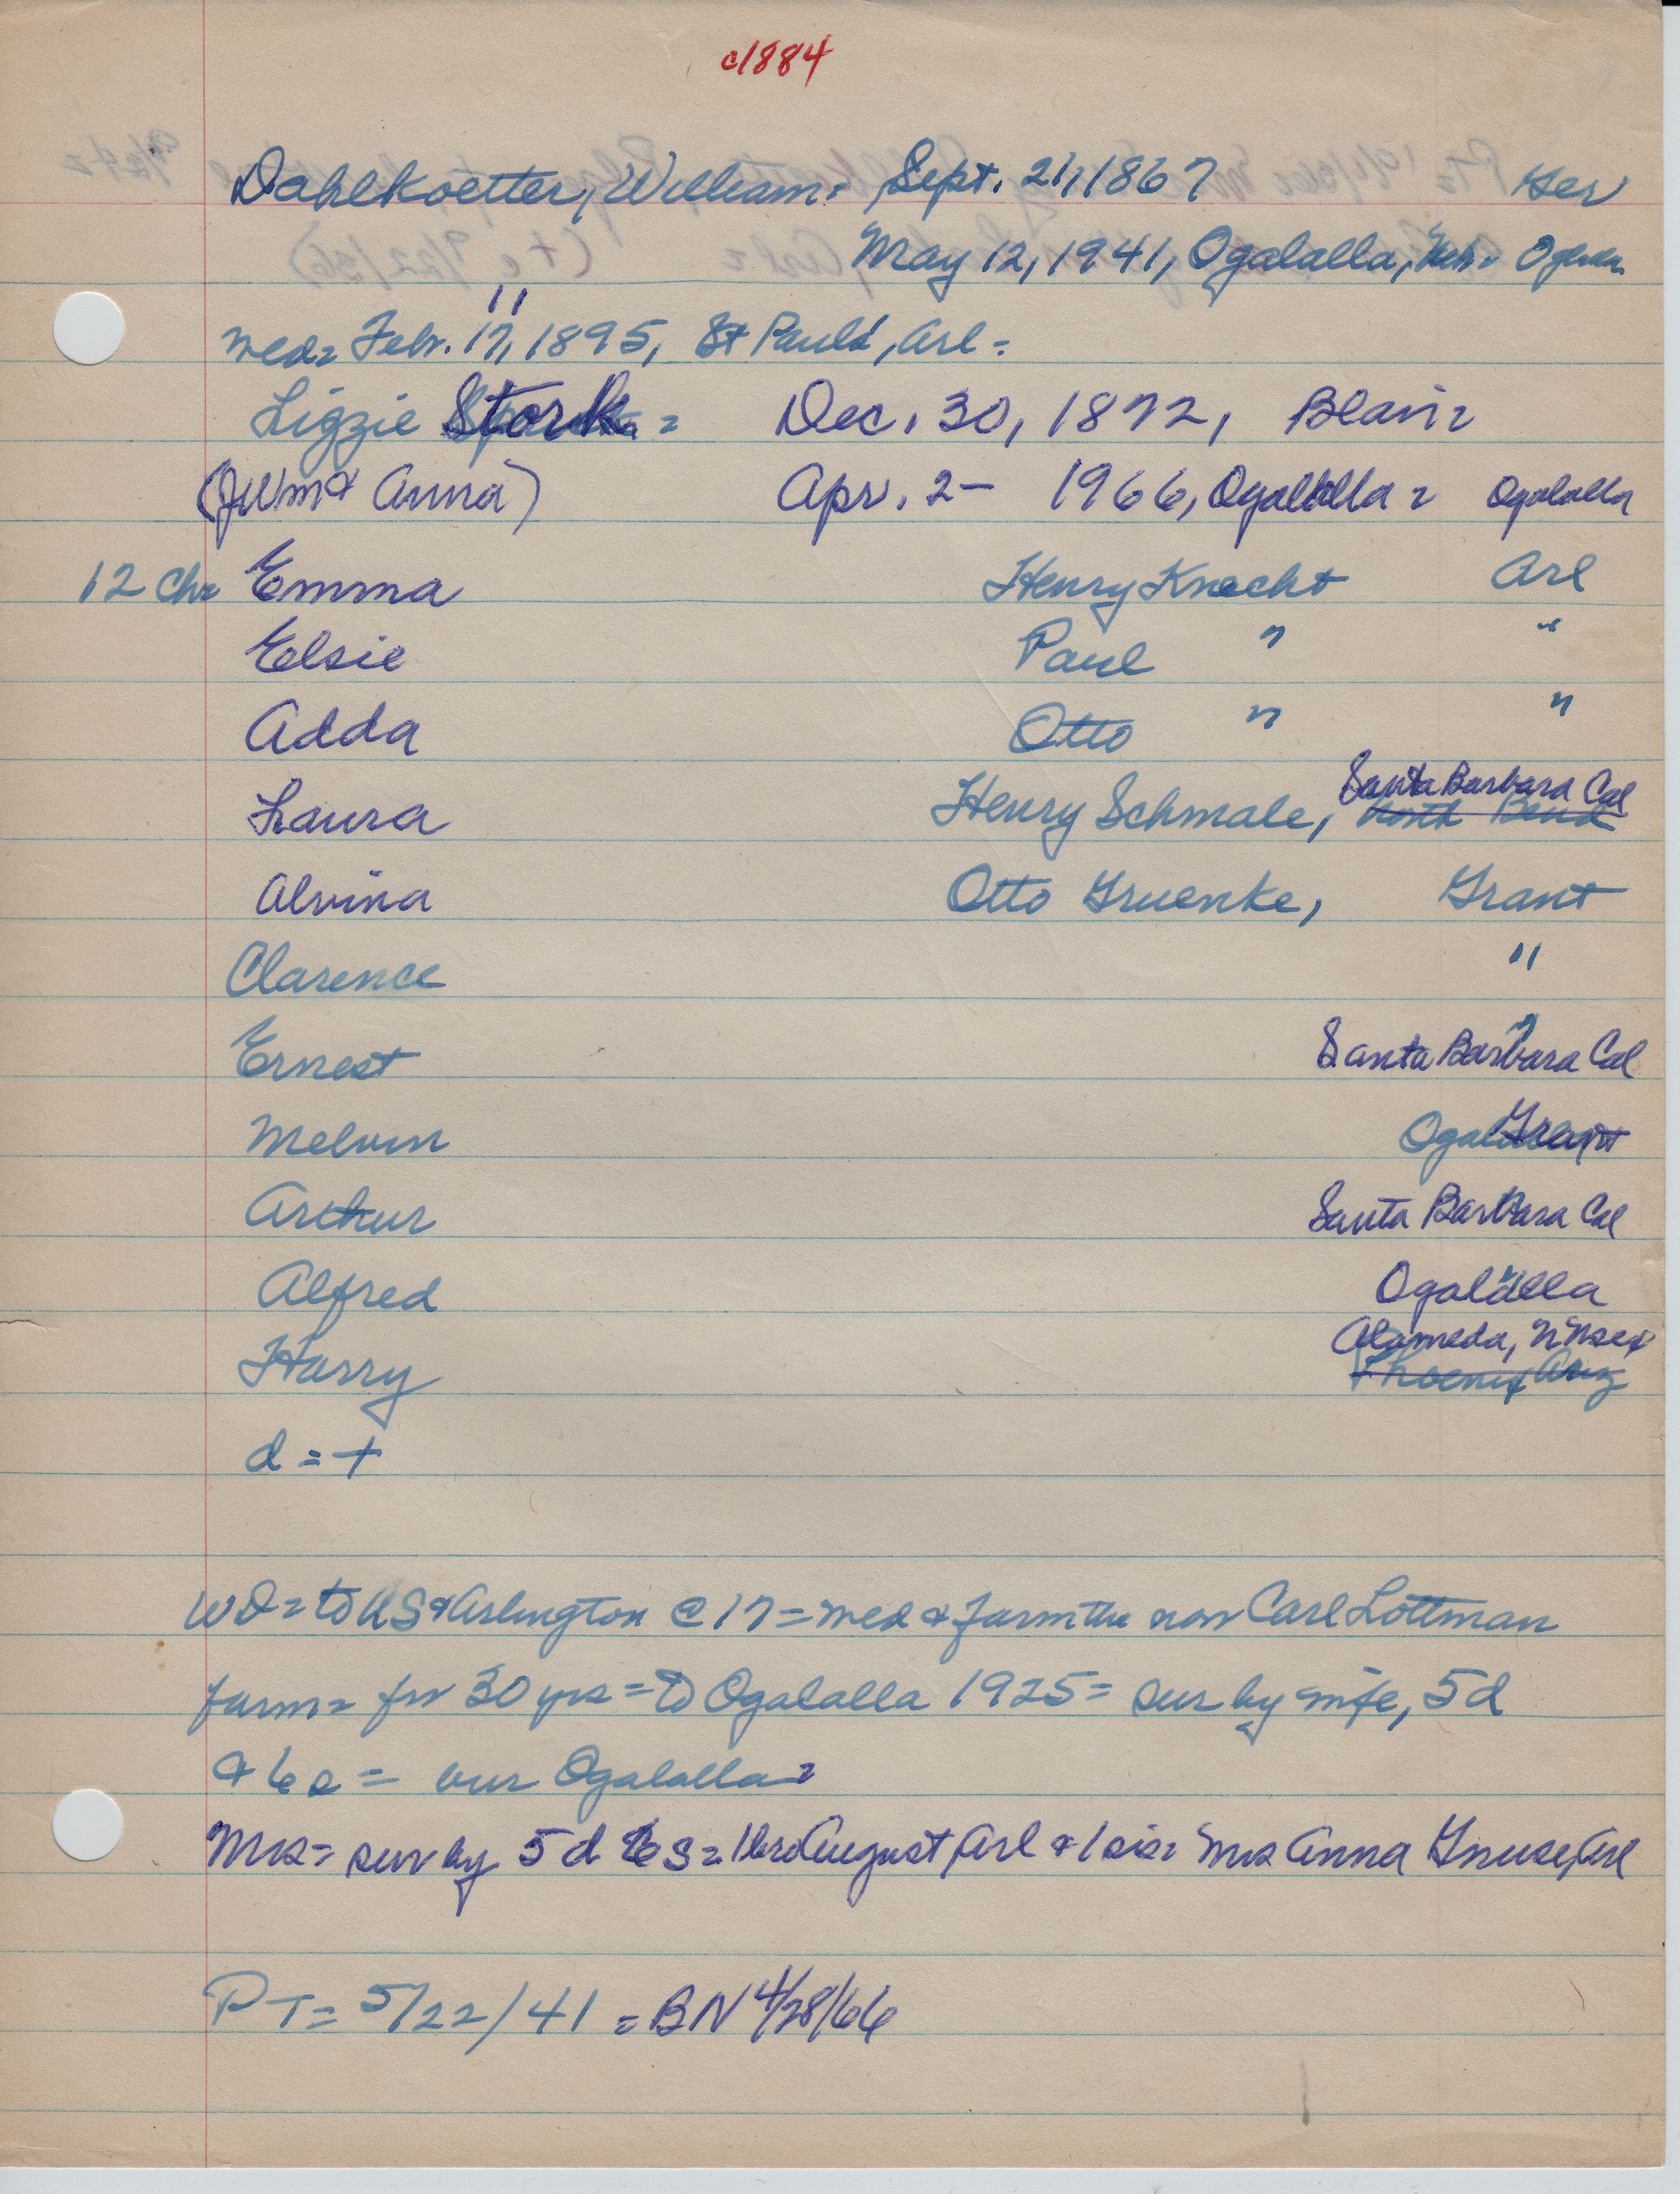 c1884
Dahlkoetter, William = Sept. 21, 1867 Ger
May 12, 1941, Ogalalla, Neb =
11
med = Febr. 17, 1895, St Paul's, Arl =
Lizzie Stork = Dec. 30, 1872, Blair =
(J Wm & Anna) Apr. 2 - 1966, Ogalalla = Ogalalla
12 Ch = Emma Henry Knecht Arl
Elsie Paul " "
Adda Otto " "
Santa Barbara Cal
Laura Henry Schmale, North Bend
Alvina Otto Gruenke, Grant
Clarence "
Ernest Santa Barbara Cal
Melvin Grant
Arthur Santa Barbara Cal
Alfred Ogalalla
Alameda,
Harry Phoenix Ariz
d = +
WD = to US & Arlington @ 17 = med & farm the now Carl Lottman
farm = for 30 yrs = to Ogalalla 1925 = sur by wife, 5 d
& 6 s = bur Ogalalla =
Mrs = sur by 5 d 6 s = 1 bro August, Arl & 1 sis = Mrs Anna Gnuse, Arl
PT = 5/22/41 = BN 4/28/66